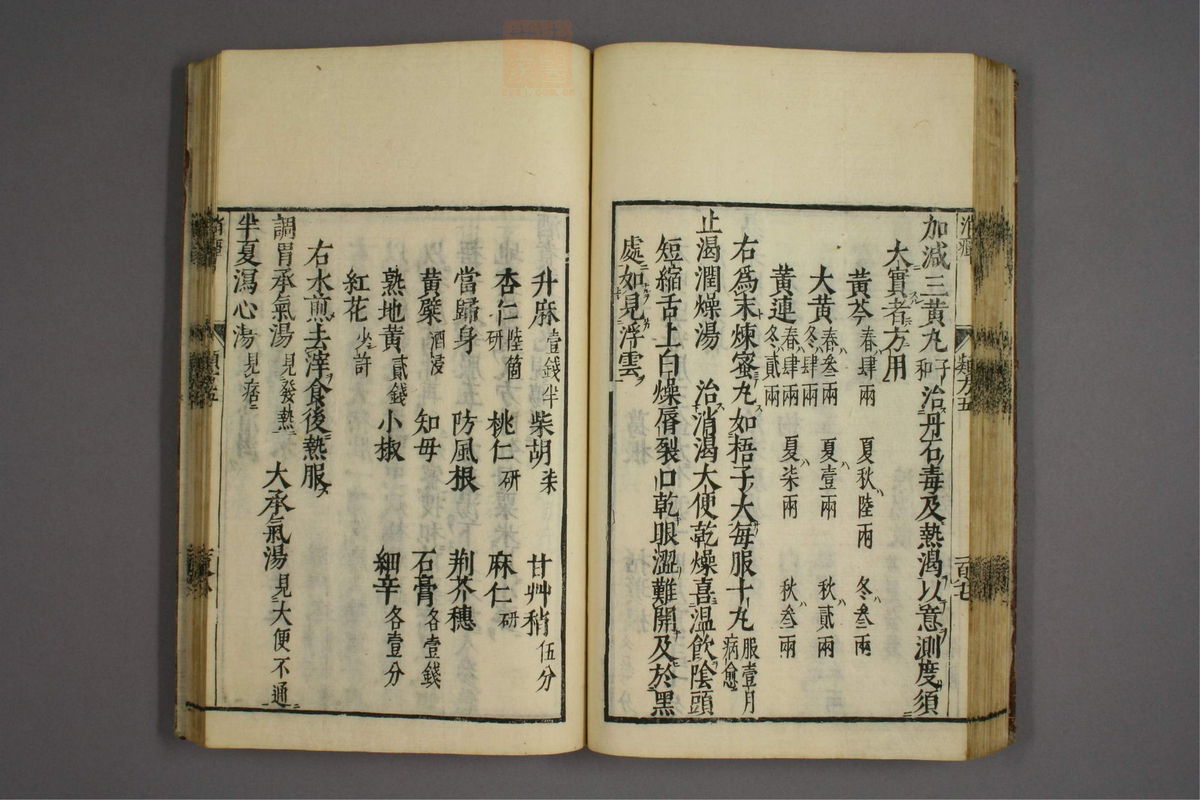 加減三黄丸 子和 治丹石毒及熱渴以意測度須
大實者方用
黄芩 春肆兩 夏秋陸兩 冬叁兩
大黄 春叁兩 冬肆兩 夏壹兩 秋貳兩
黄連 春肆兩 冬貳兩 夏柒兩 秋叁兩
右爲末煉蜜丸如梧子大每服十丸 服壹月病愈
止渴潤燥湯 治消渴大便乾燥喜温飲陰頭
短縮舌上白燥脣裂口乾眼澀難開及於黑
處如見浮雲
升麻 壹錢半 柴胡 柒 甘艸稍 伍分
杏仁 陸箇研 桃仁 研 麻仁 研
當歸身 防風根 荆芥穗
黄檗 酒浸 知母 石膏 各壹錢
熟地黄 貳錢 小椒 細辛 各壹分
紅花 少許
右水煎去滓食後熱服
調胃承氣湯 見發熱 大承氣湯 見大便不通
半夏瀉心湯 見痞